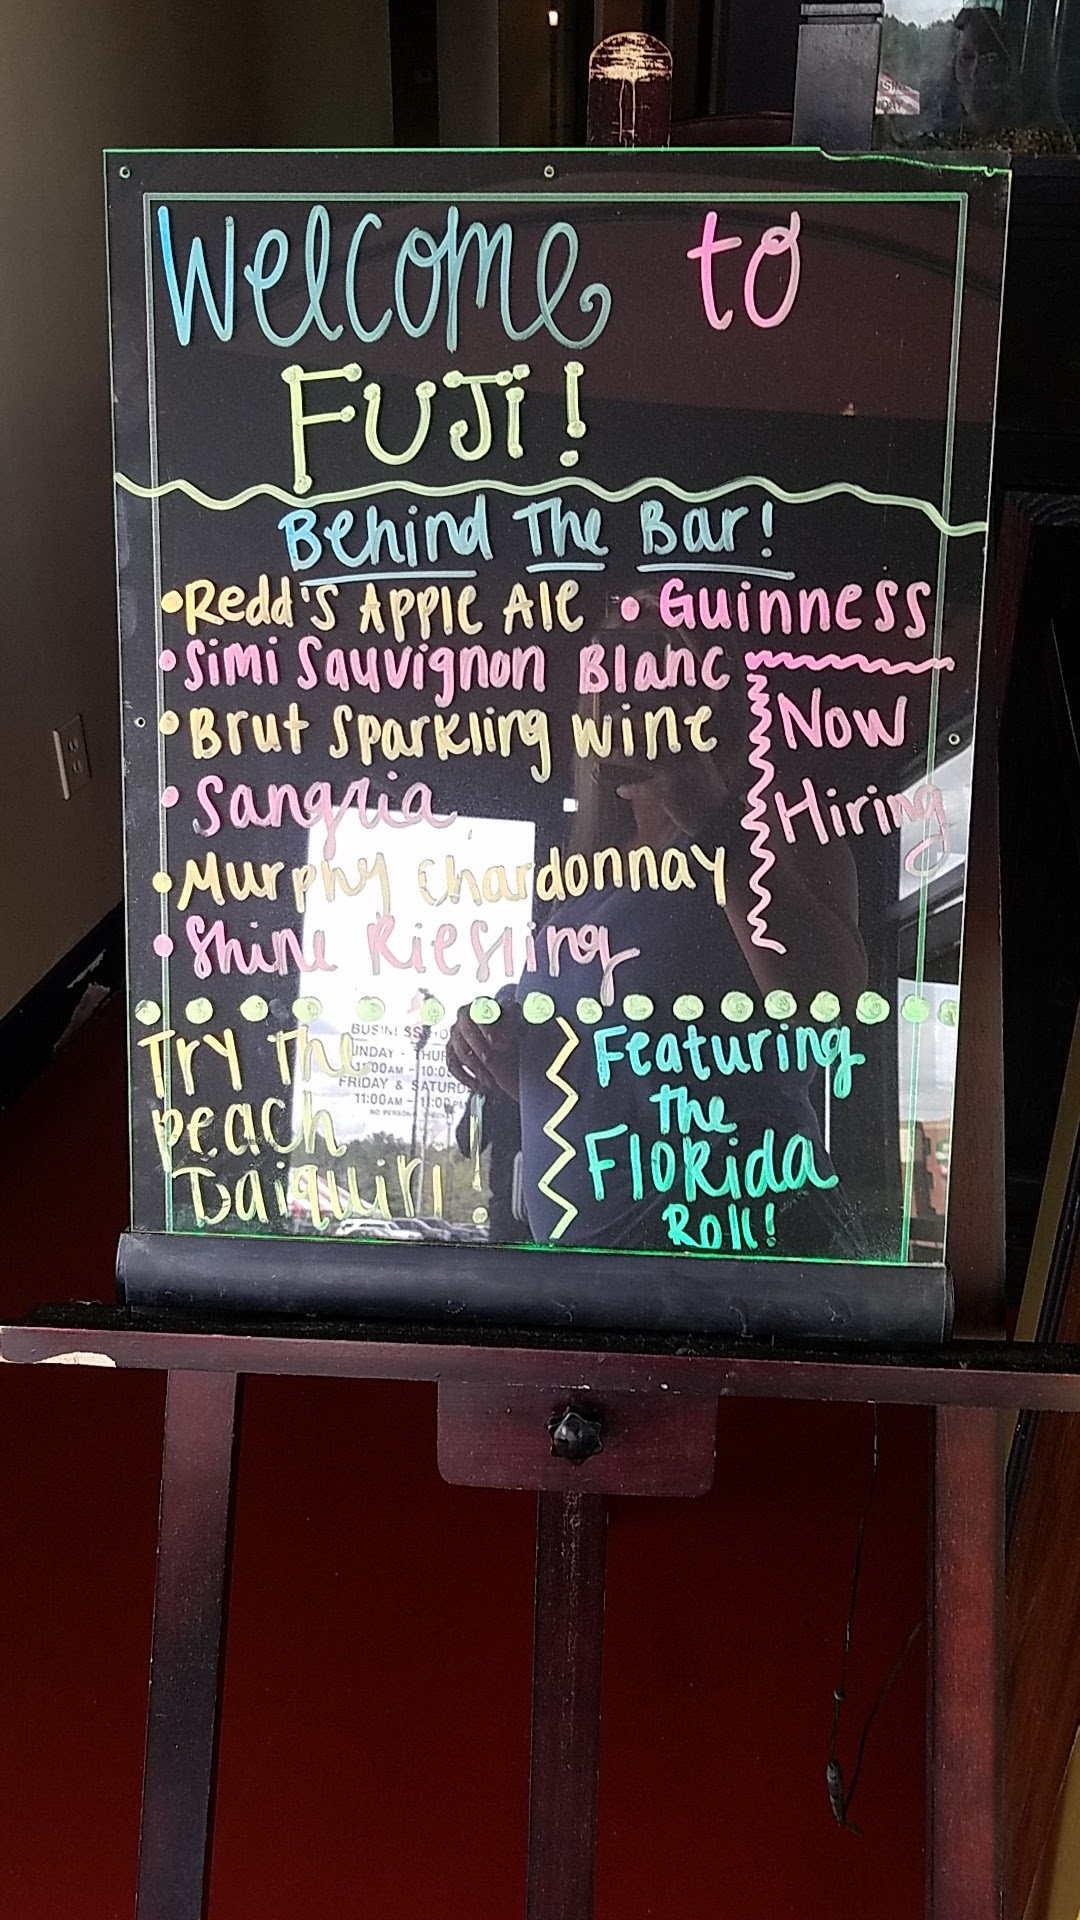 Welcome to
FUJi!
Behind The Bar!
•Redd's Apple Ale •Guinness
•Simi Sauvignon Blanc
•Brut Sparkling wine
Now
Hiring
•Sangria
•Murphy Chardonnay
•Shine Riesling
Try The
peach
Daiquiri!
Featuring
the
Florida
Roll!
BUSINESS
11:00AM - 10:0
FRIDAY & SATURD
11:00AM - 11:00